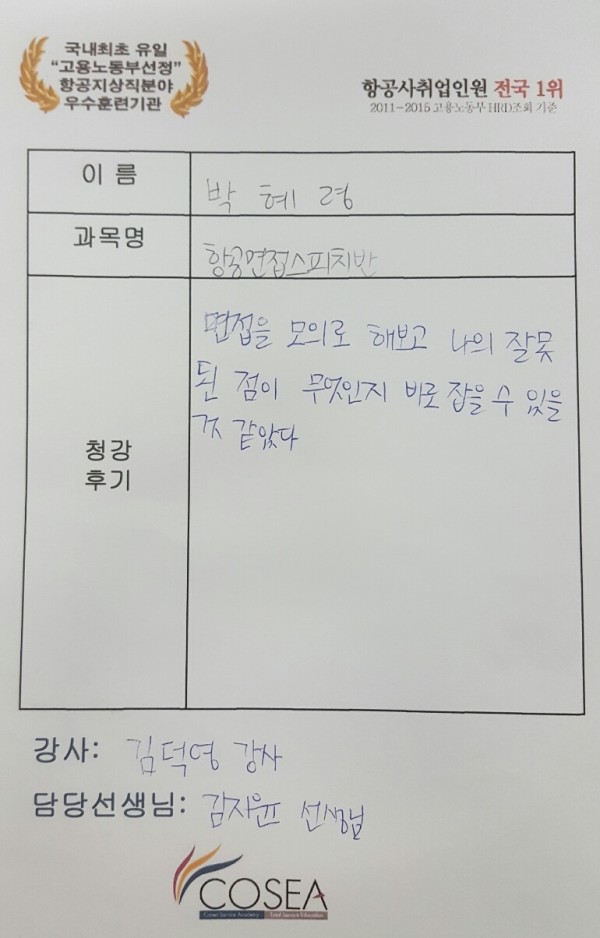 국내최초 유일
“고용노동부선정”
항공지상직분야
우수훈련기관
항공사취업인원 전국 1위
2011-2015 고용노동부 HRD조회 기준
이 름
박 혜 령
과목명
항공면접스피치반
청강
후기
면접을 모의로 해보고 나의 잘못
된 점이 무엇인지 바로 잡을 수 있을
것 같았다
강사: 김덕영 강사
담당선생님: 김지윤 선생님
COSEA
Cosea Service Academy Total Service Education